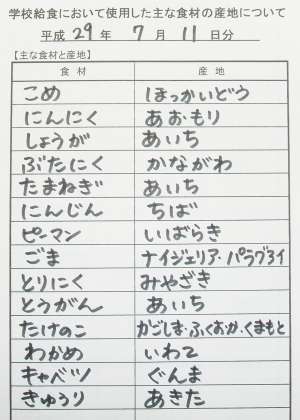 学校給食において使用した主な食材の産地について
平成 29 年 7 月 11 日分
【主な食材と産地】
食材 産地
こめ ほっかいどう
にんにく あおもり
しょうが あいち
ぶたにく かながわ
たまねぎ あいち
にんじん ちば
ピーマン いばらき
ごま ナイジェリア・パラグアイ
とりにく みやざき
とうがん あいち
たけのこ かごしま・ふくおか・くまもと
わかめ いわて
キャベツ ぐんま
きゅうり あきた